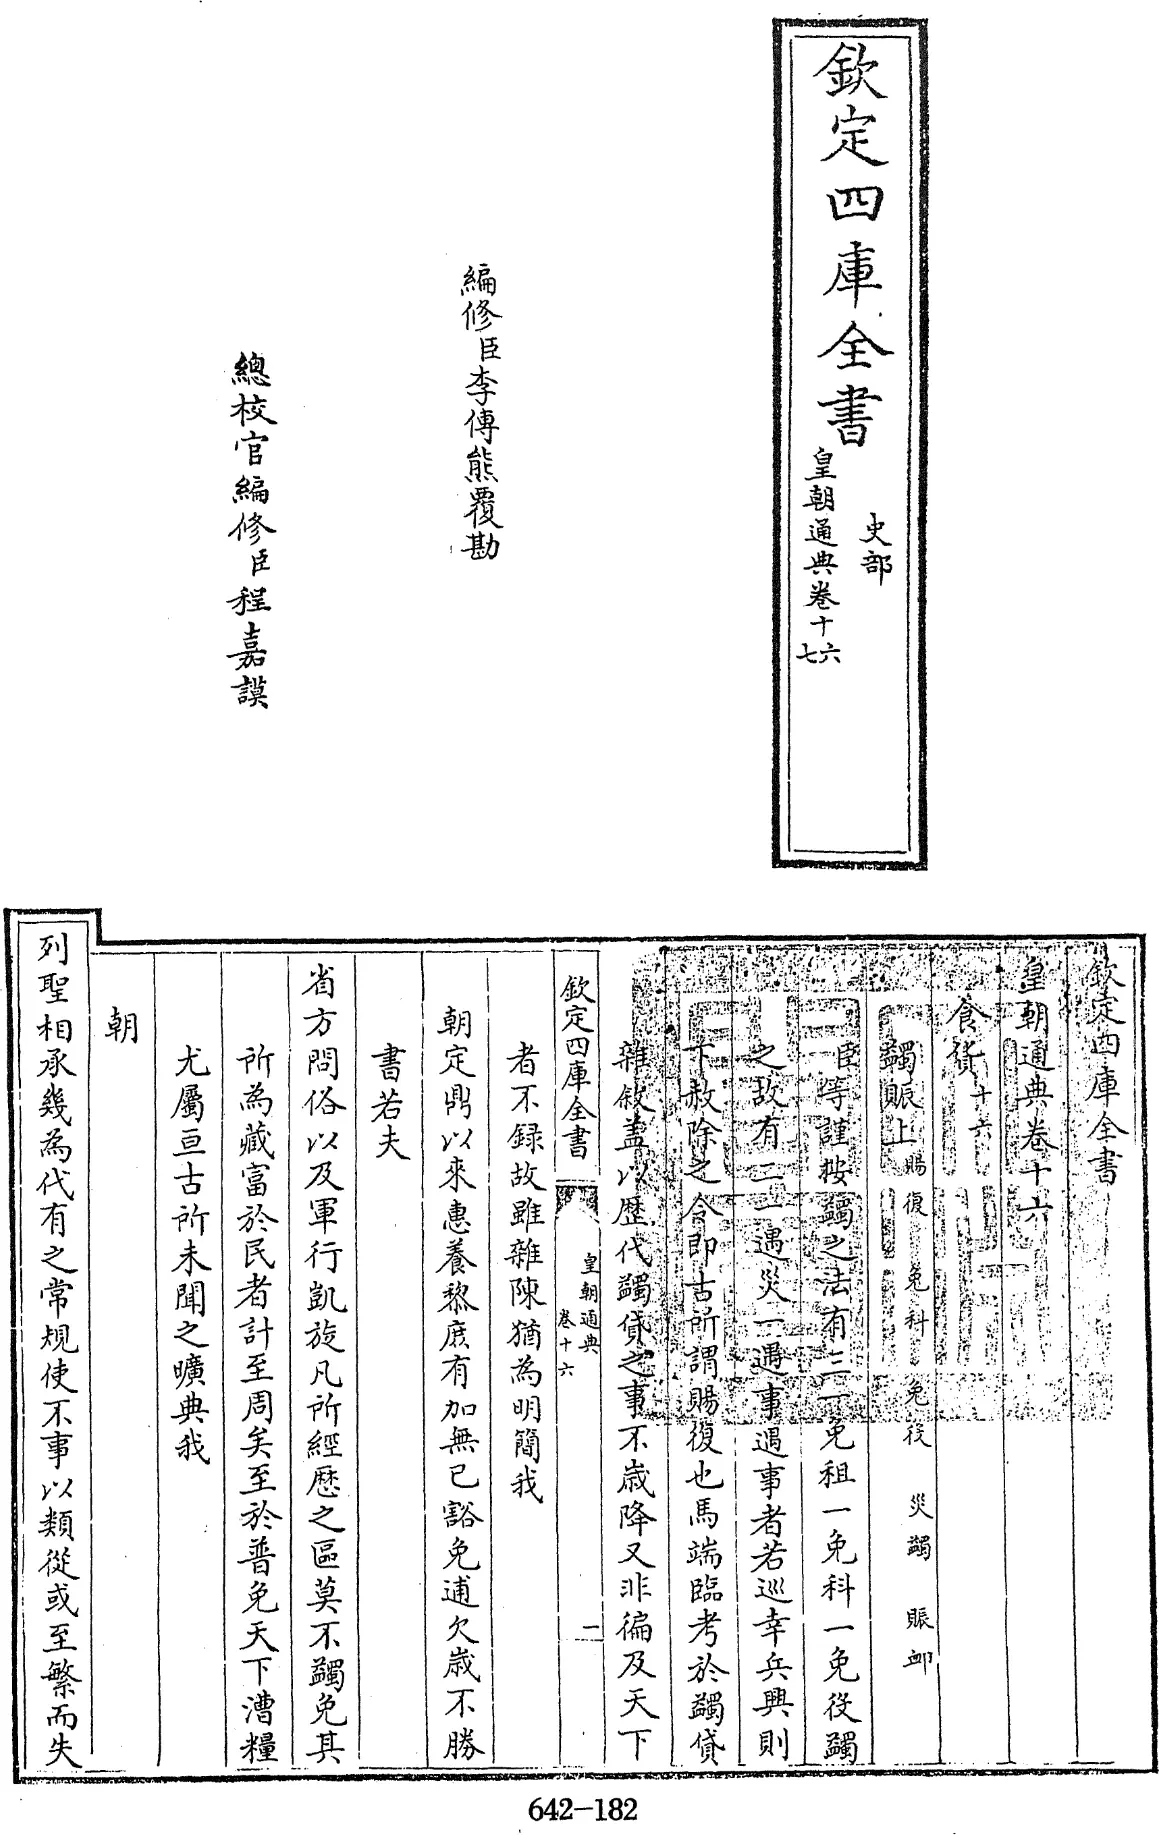 欽定四庫全書
史部
皇朝通典卷十六
七
編修臣李傳熊覆勘
總校官編修臣程嘉謨
欽定四庫全書
皇朝通典卷十六
食貨十六
蠲賑上賜復 免科 免役 災蠲 賑卹
臣等謹按蠲之法有三一免租一免科一免役蠲
之故有二一遇災一遇事遇事者若巡幸兵興則
下赦除之令即古所謂賜復也馬端臨考於蠲貸
雜敘蓋以歷代蠲貸之事不歲降又非徧及天下
欽定四庫全書
皇朝通典
卷十六
一
者不録故雖雜陳猶為明簡我
朝定鼎以來惠養黎庶有加無已豁免逋欠歲不勝
書若夫
省方問俗以及軍行凱旋凡所經歷之區莫不蠲免其
所為藏富於民者計至周矣至於普免天下漕糧
尤屬亘古所未聞之曠典我
朝
列聖相承幾為代有之常規使不事以類從或至繁而失
642-182